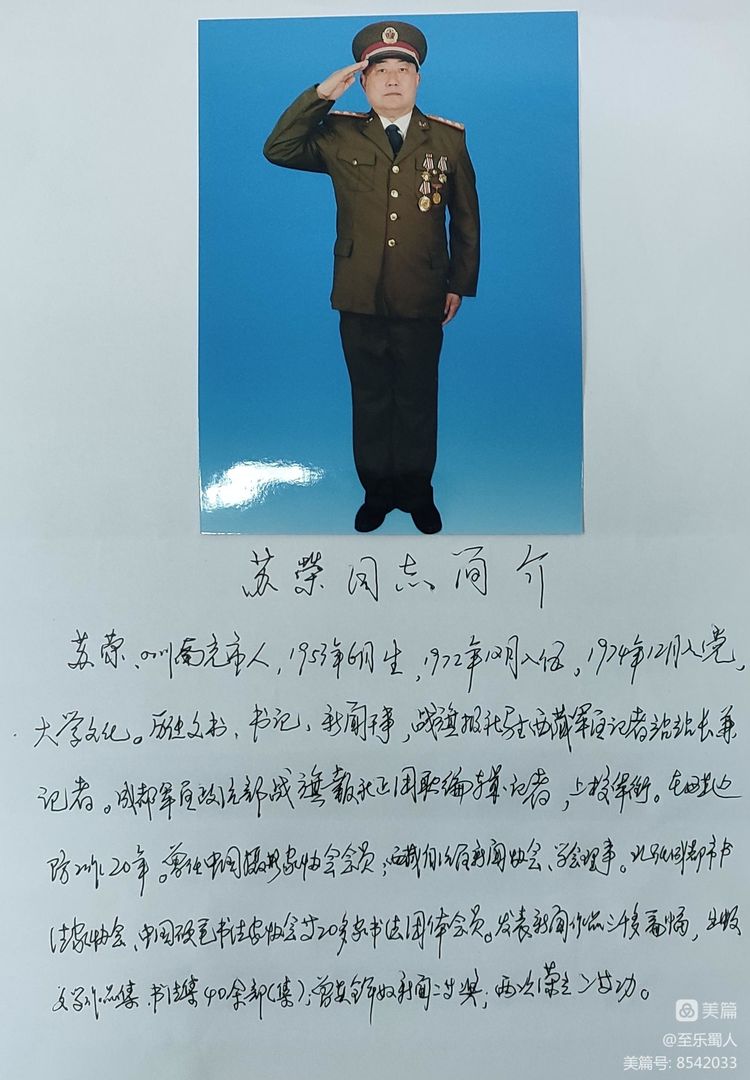 苏荣同志简介
苏荣、四川南充市人，1953年6月生，1972年12月入伍，1974年12月入党，
大学文化。历任文书、书记、新闻干事，战旗报社驻西藏军区记者站站长兼
记者。成都军区政治部战旗報社正团职编辑记者，上校军衔。在西藏边
防工作20年。曾任中国摄影家协会会员；西藏自治区新闻协会、学会理事。现任成都市书
法家协会、中国硬笔书法家协会等20多家书法团体会员。发表新闻作品三千多篇幅，出版
文学作品集、书法集40余部(集)；曾获全军新闻二等奖；两次荣立二等功。
美篇
@至乐蜀人
美篇号: 8542033